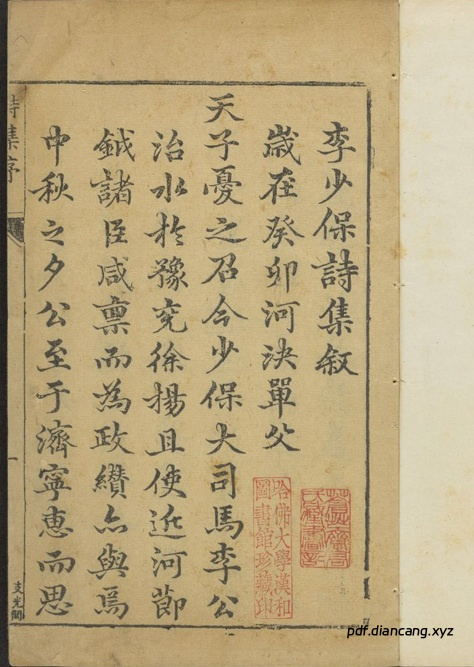 李少保詩集叙
歲在癸卯河決單父
天子憂之召今少保大司馬李公
治水扵豫兖徐揚且使近河節
鉞諸臣咸禀而為政纉亦與焉
中秋之夕公至于濟寧惠而思
詩集序
一
支光閣
哈佛大學漢和
圖書館珍藏印
pdf.diancang.xyz